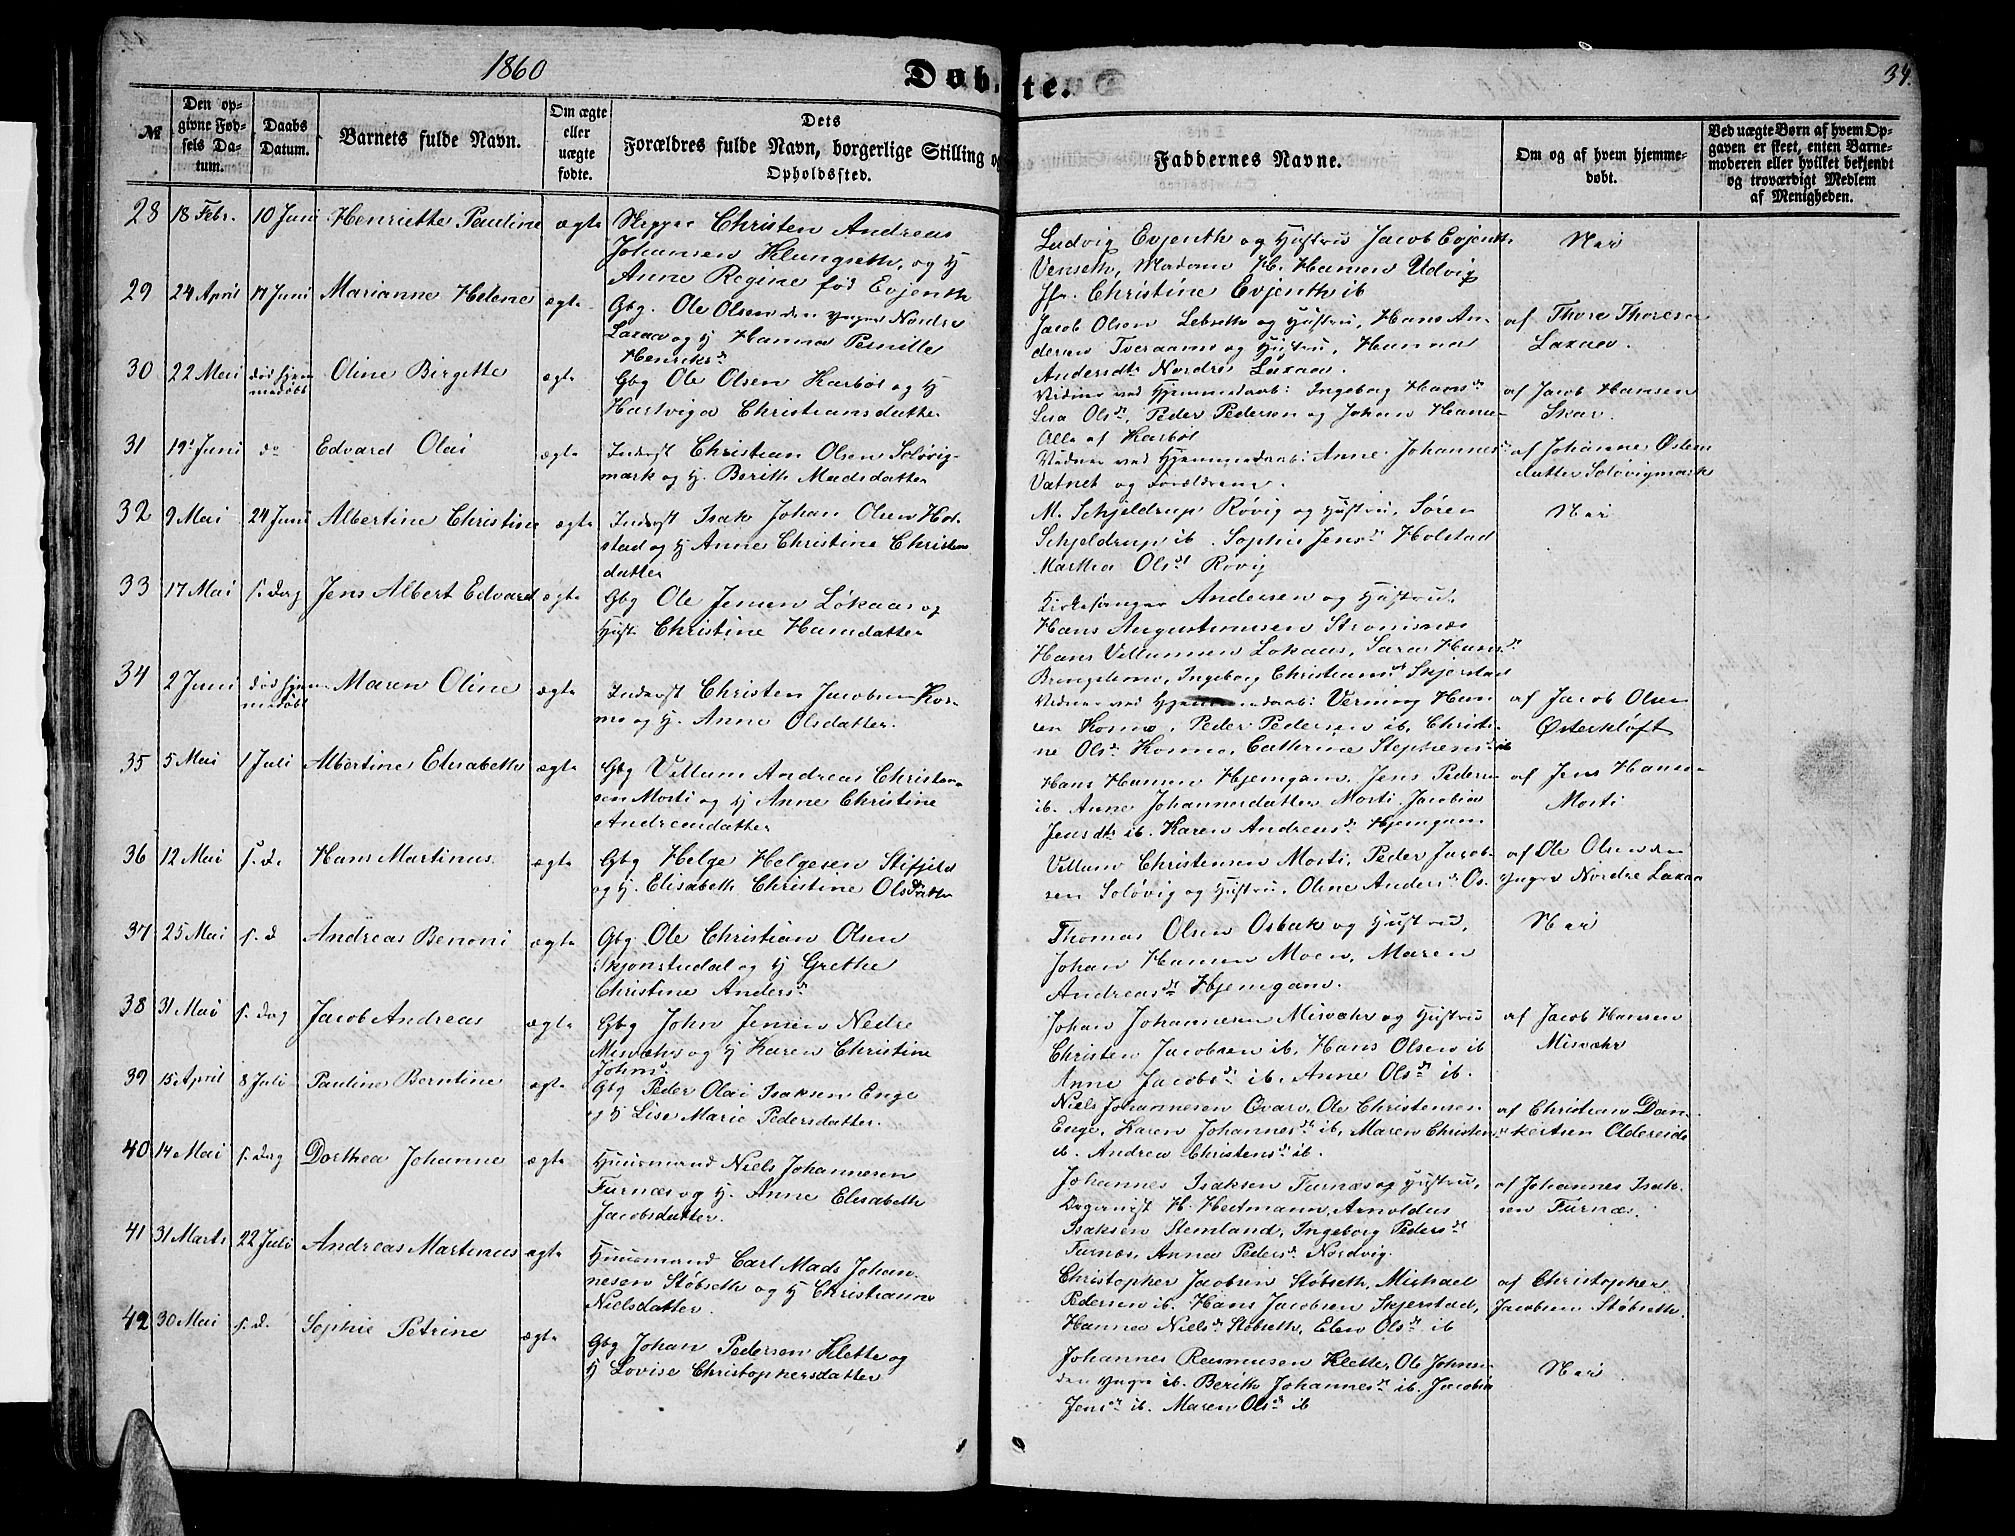 1860
Døbte.
34.
No
Den opgivne Fødsels Datum.
Daabs Datum.
Barnets fulde Navn.
Om ægte eller uægte fødte.
Dets Forældres fulde Navn, borgerlige Stilling og Opholdssted.
Faddernes Navne.
Om og af hvem hjemmedøbt.
Ved uægte Børn af hvem Opgaven er skeet, enten Barnemoderen eller hvilket bekjendt og troværdigt Medlem af Menigheden.
28 18 Febr. 10 Juni Henriette Pauline ægte Skipper Christen Andreas
Johansen Klungseth, og Hj
Anne Regine fød Evjenth
Ludvig Evjenth og Hustru Jacob Evjenth
Venseth, Madam H. Hansen Udvig
Jfr. Christine Evjenth ib
Nei
29 24 April 17 Juni Marianne Helene ægte Gbg. Ole Olsen den yngre Nordre
Laxaa og Hj Hanna Pernille
Henriksdr
Jacob Olsen Lebseth og Hustru, Hans An-
dersen Tveraamo og Hustru, Hanna
Andersdtr Nordre Laxaa.
af Thore Thoresen
Laxaa.
30 22 Mai død hjem-
medøbt Oline Birgitte ægte Gbg Ole Olsen Karbøl og Hj
Hartviga Christiansdatter
Vidner ved Hjemmedaab: Ingeborg Hansdr
Lisa Olsdr, Peder Pedersen og Johan Hansen
Alle af Karbøl
af Jacob Hansen
Skar.
31 19 Juni do Edvard Olai ægte Inderst Christian Olsen Soløvig-
mark og Hj. Berith Madsdatter
Vidner ved Hjemmedaab: Anne Johannesdr
Vatnet og Forældrene.
af Johanne Østens
datter Soløvigmark
32 9 Mai 24 Juni Albertine Christine ægte Inderst Isak Johan Olsen Hol-
stad og Hj Anne Christine Christens
datter
M. Schjeldrup Røvig og Hustru, Søren
Schjeldrup ib. Sophie Jensdr Holstad
Martha Olsdr Røvig
Nei
33 17 Mai s. Dag Jens Albert Edvard ægte Gbg Ole Jensen Løkaas og
Hust. Christine Hansdatter
Kirkesanger Andersen og Hustru,
Hans Augustinussen Strømsnæs
Hans Villumsen Løkaas, Sara Hansdr
Bringslimo, Ingeborg Christiansdr Skjerstad
34 2 Juni død hjem-
medøbt Maren Oline ægte Inderst Christen Jacobsen Kos-
mo og Hj. Anne Olsdatter.
Vidner ved Hjemmedaab: Verning Han-
sen Kosmo, Peder Pedersen ib, Christi-
ne Olsdr Kosmo, Cathrine Stephensdr ib
af Jacob Olsen
Østerkløft
35 5 Mai 1 Juli Albertine Elisabeth ægte Gbg Villum Andreas Christen-
sen Mosti og Hj Anne Christine
Andreasdatter
Hans Hansen Hjemgam, Jens Pedersen
ib. Anne Johannesdatter Mosti, Jacobia
Jensdtr ib. Karen Andreasdr Hjemgam
af Jens Hansen
Mosti
36 12 Mai s. d. Hans Martinus ægte Gbg Helge Helgesen Stifjeld
og Hj. Elisabeth Christine Olsdatter
Villum Christensen Mosti, Peder Jacob-
sen Soløvig og Hustru, Oline Andersdr Os.
af Ole Olsen den
yngre Nordre Laxaa
37 25 Mai s. d Andreas Benoni ægte Gbg Ole Christian Olsen
Skjønstudal og Hj Grethe
Christine Andersdr
Thomas Olsen Osbak og Hustru,
Johan Hansen Moen, Maren
Andreasdr Hjemgam.
Nei
38 31 Mai s. Dag Jacob Andreas ægte Gbg John Jensen Nedre
Misvær og Hj Karen Christine
Johnsdr
Johan Johannesen Misvær og Hustru
Christen Jacobsen ib, Hans Olsen ib
Anne Jacobsdr ib. Anne Olsdr ib.
af Jacob Hansen
Misvær
39 15 April 8 Juli Pauline Berntine ægte Gbg Peder Olai Isaksen Enge
og Hj Lise Marie Pedersdatter.
Niels Johannesen Qvarv, Ole Christensen
Enge, Karen Johannesdr ib, Maren Christensdr
ib. Andrea Christensdr ib.
af Christian Dan-
kertsen Aldereide
40 14 Mai s. Dag Dorthea Johanne ægte Huusmand Niels Johannesen
Furnæs og Hj. Anne Elisabeth
Jacobsdatter.
Johannes Isaksen Furnæs og Hustru,
H. Heitmann, Arnoldus
Isaksen Stemland, Ingeborg Pedersdr
Furnæs, Anna Pedersdr Nordvig.
af Johannes Isak-
sen Furnæs.
41 31 Marts 22 Juli Andreas Martinus ægte Huusmand Carl Mads Johan-
nesen Støbseth og Hj Christianne
Nielsdatter.
Christopher Jacobsen Støbseth, Michael
Pedersen ib. Hans Jacobsen Skjerstad,
Hanna Nielsdr Støbseth, Elen Olsdr ib
af Christopher
Jacobsen Støbseth.
42 30 Mai s. d. Sophie Petrine ægte Gbg Johan Pedersen Klette og
Hj Lovise Christophersdatter
Johannes Rasmusen Klette, Ole Johnsen
den yngre ib. Berith Johannesdr ib. Jacobia
Jensdr ib. Maren Olsdr ib
Nei